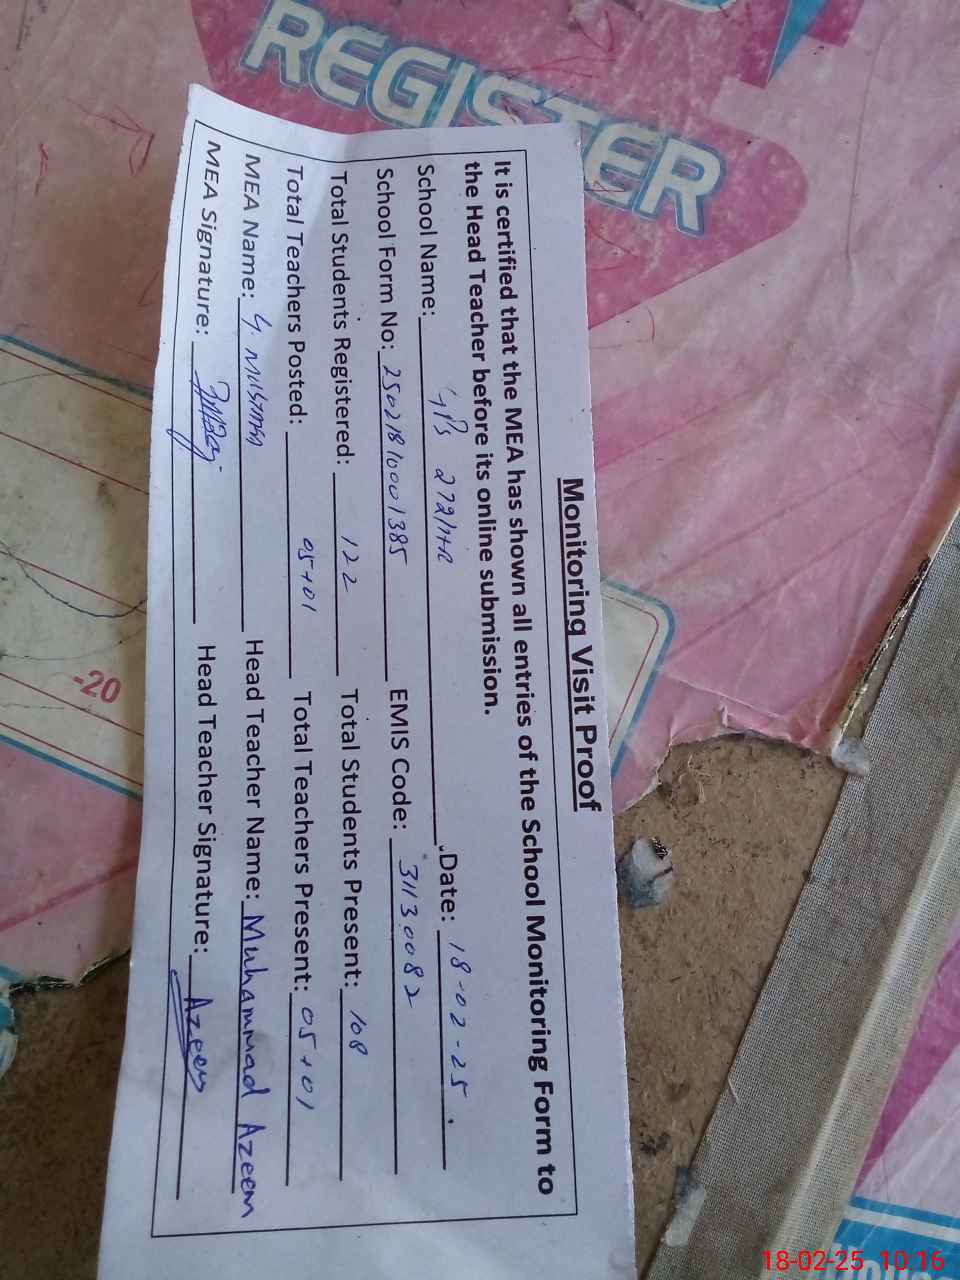 REGISTER
Monitoring Visit Proof
It is certified that the MEA has shown all entries of the School Monitoring Form to
the Head Teacher before its online submission.
School Name: GPS 272/HR Date: 18-02-25.
School Form No: 25021810001385 EMIS Code: 31130082
Total Students Registered: 122 Total Students Present: 108
Total Teachers Posted: 05+01 Total Teachers Present: 05+01
MEA Name: G. Mustafa Head Teacher Name: Muhammad Azeem
MEA Signature: Head Teacher Signature: Azeem
-20
18-02-25 10:16